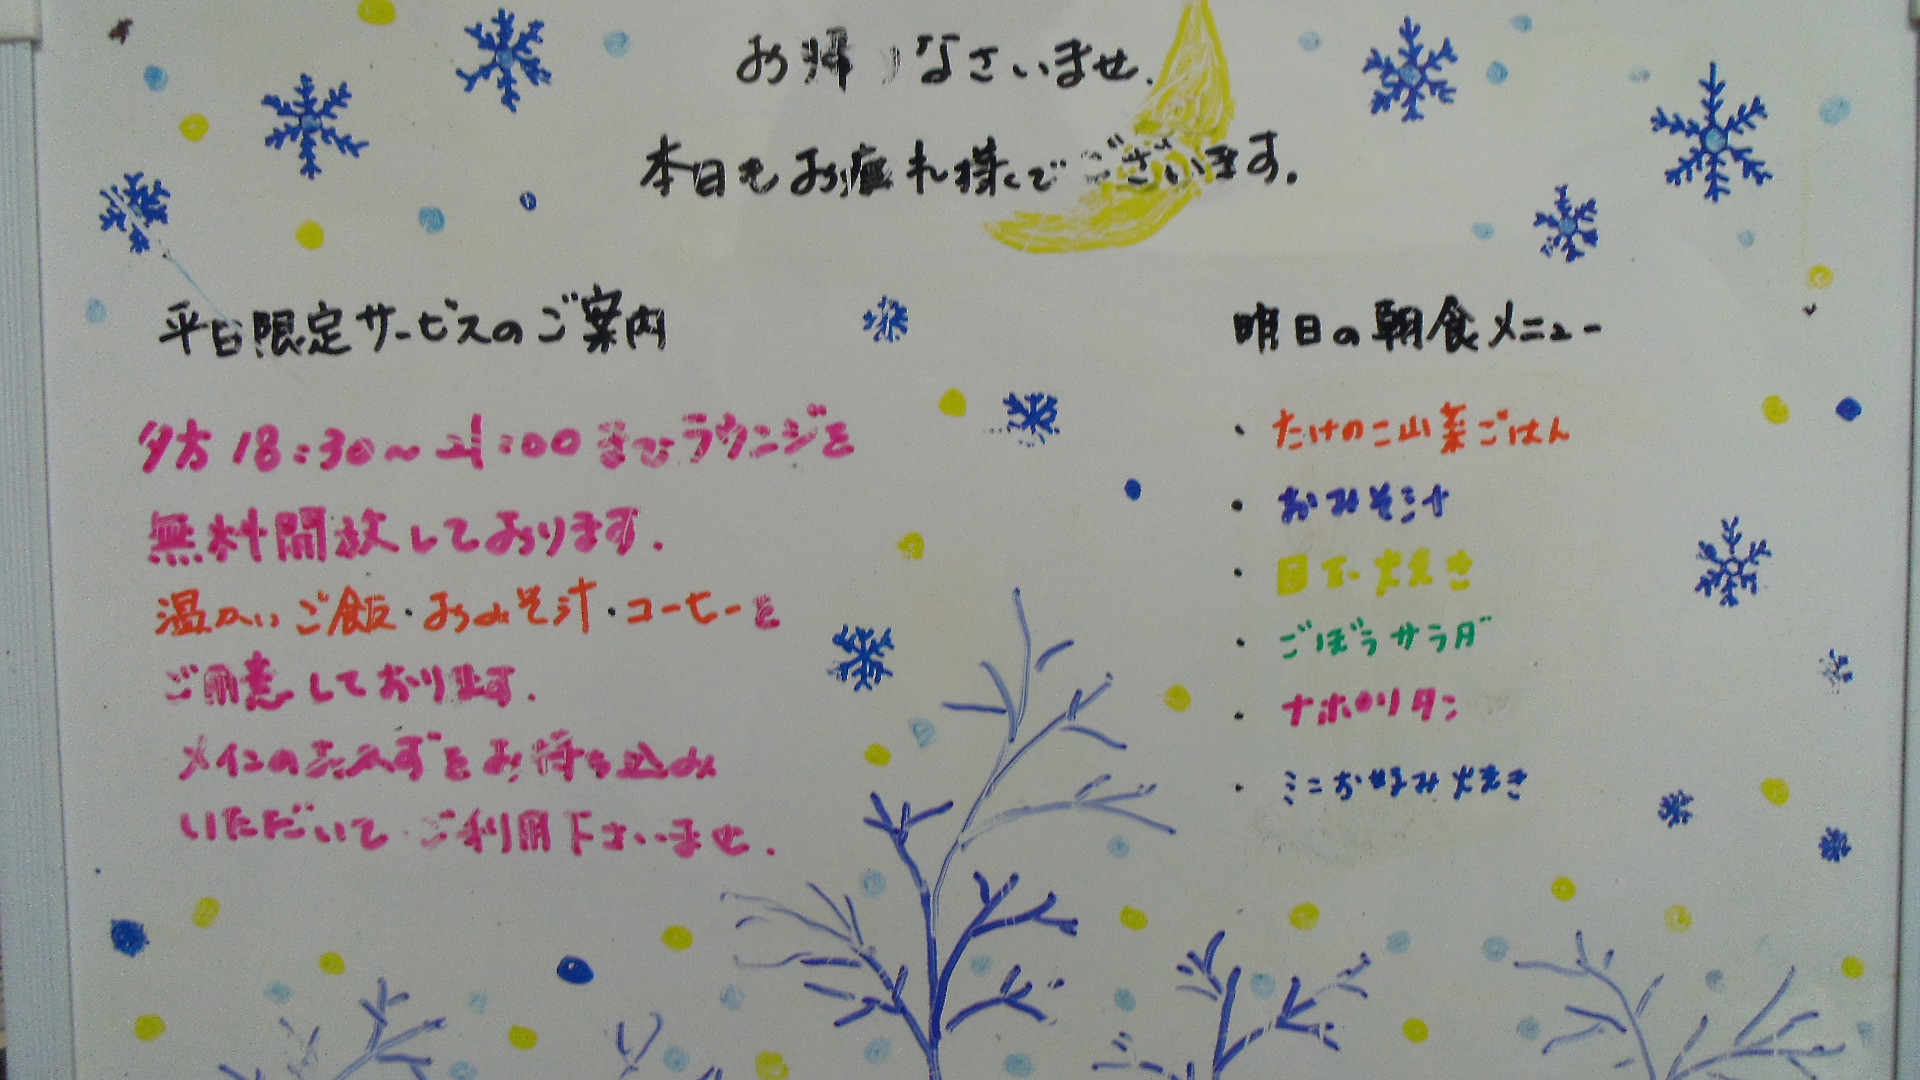 お帰りなさいませ.
本日もお疲れ様でございます.
平日限定サービスのご案内
夕方 18:30～21:00までラウンジを
無料開放しております.
温かいご飯・おみそ汁・コーヒーを
ご用意しております.
メインのおかずをお持ち込み
いただいて ご利用下さいませ.
明日の朝食メニュー
・たけのこ山菜ごはん
・おみそ汁
・目玉焼き
・ごぼうサラダ
・ナポリタン
・ミニお好み焼き